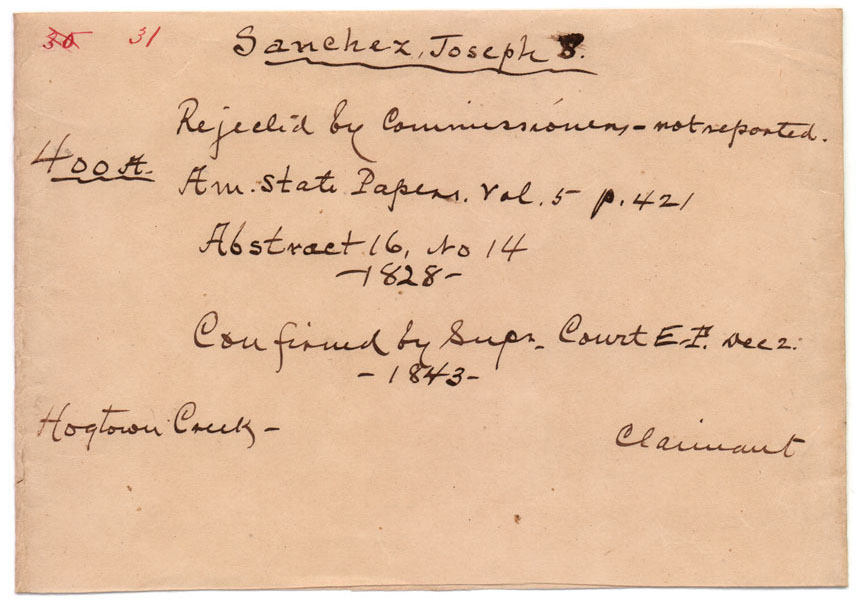 30 31
Sanchez, Joseph S.
Rejected by Commissioners - not reported.
400 A.
Am. State Papers. Vol. 5 p. 421
Abstract 16, No 14
- 1828 -
Confirmed by Supr. Court E. F. Dec 2.
- 1843 -
Hogtown Creek -
Claimant